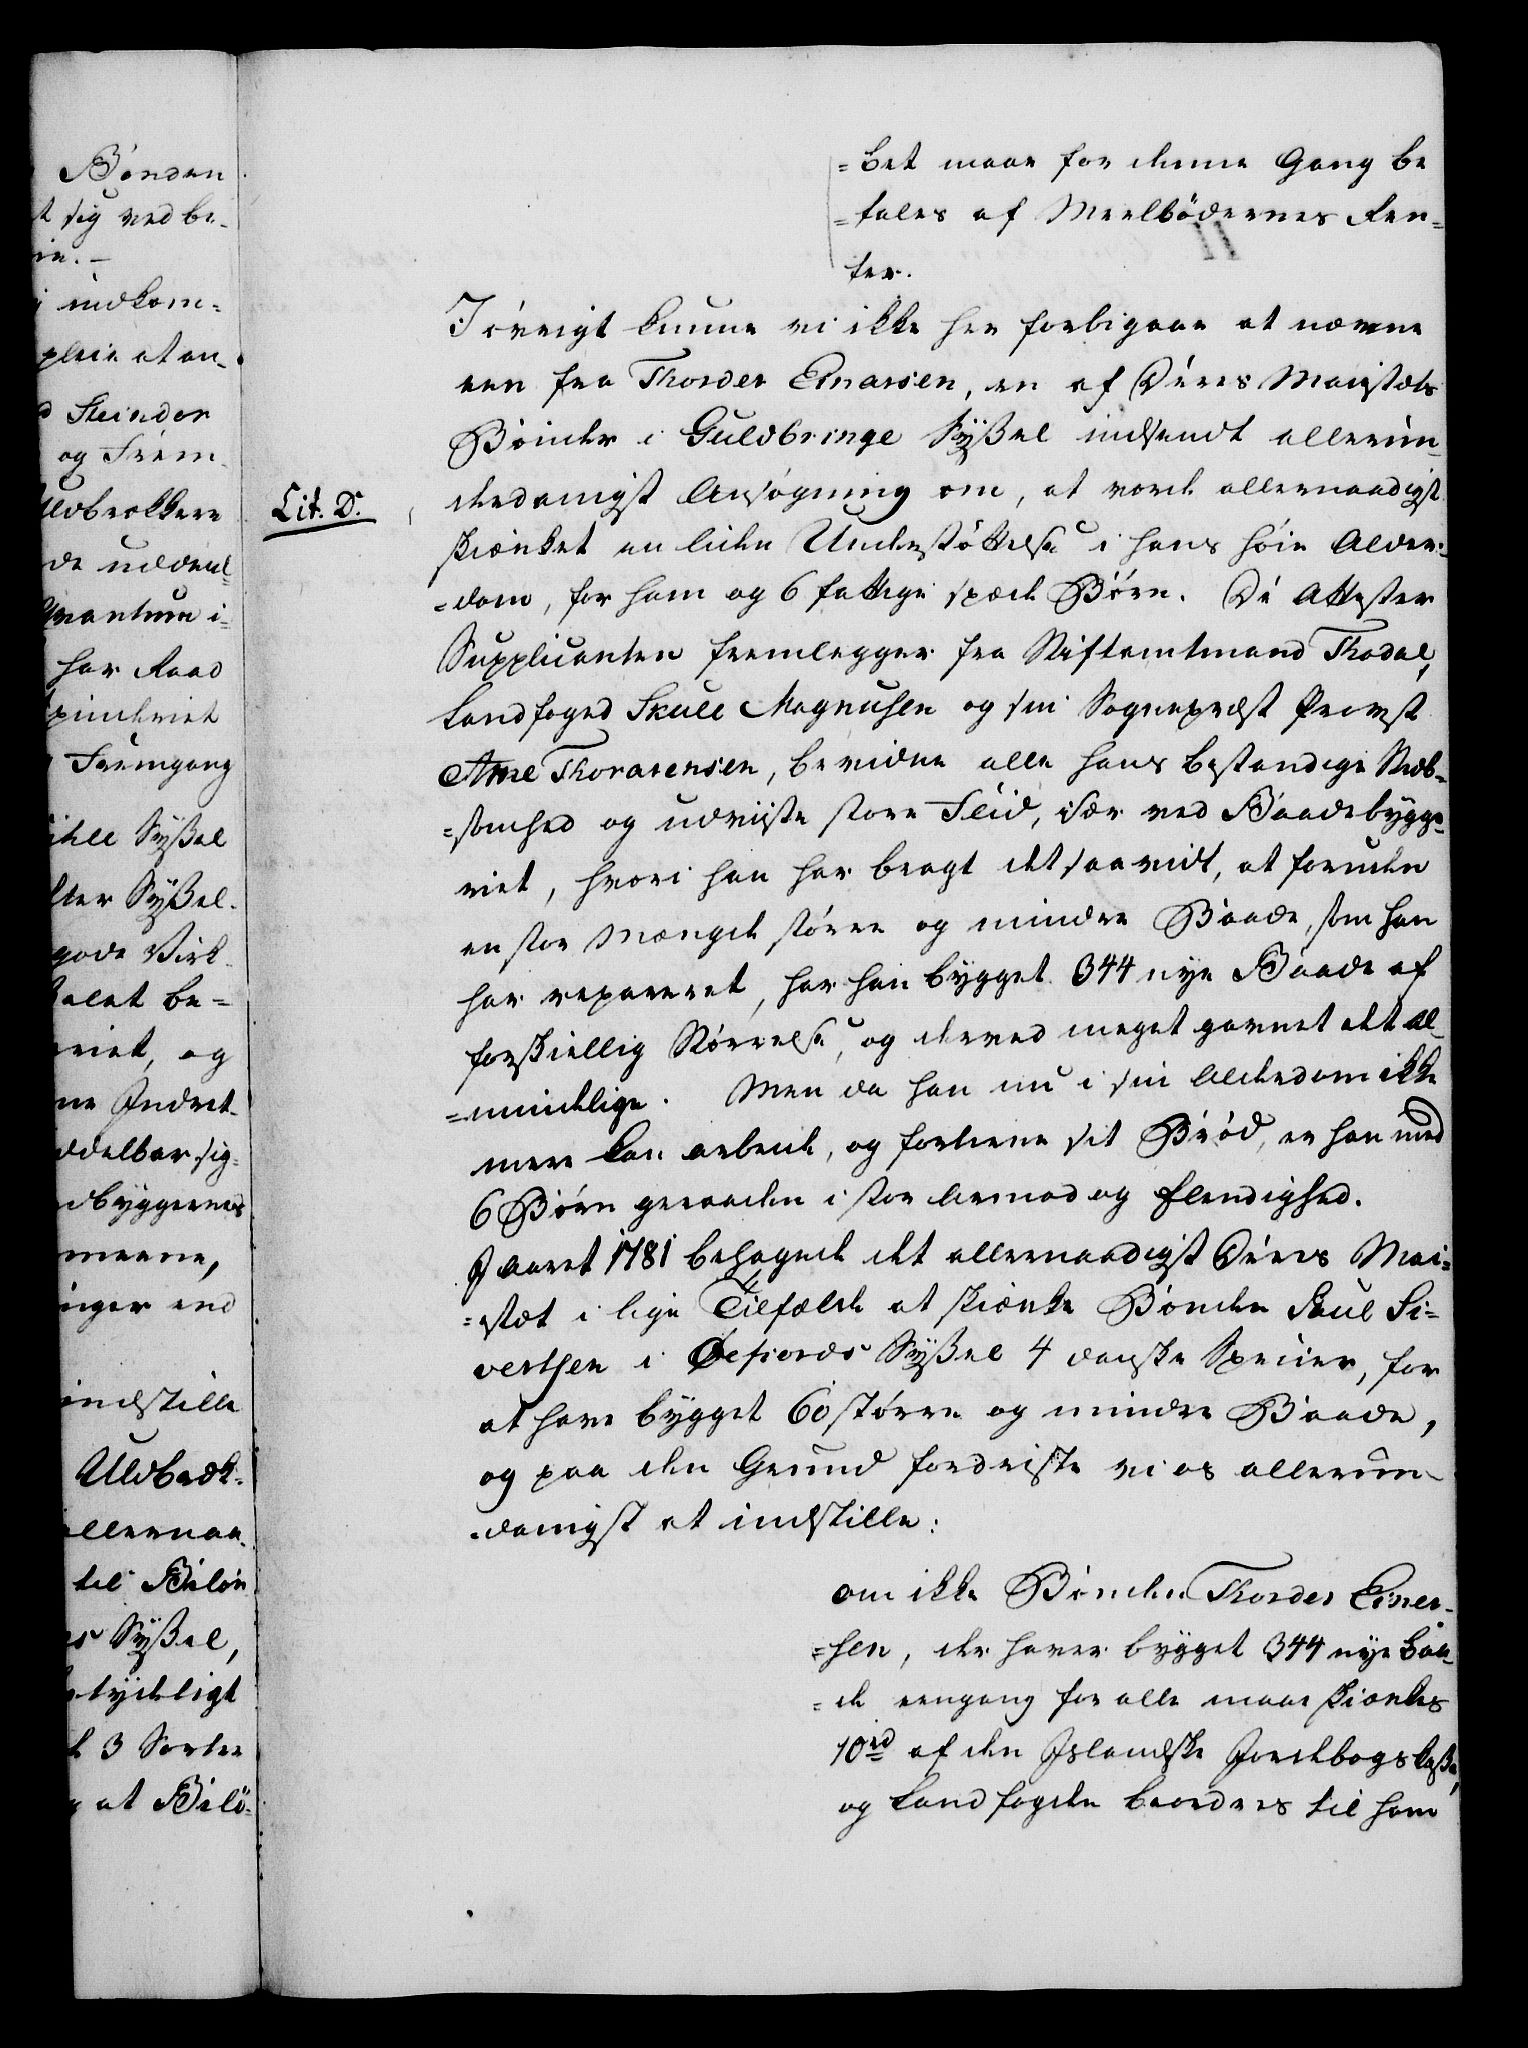 Bönden
t sig ved be-
ie. -
i indkom-
pleie at an-
d Steindor
og Frem-
Uldbrokkere
de uddeel-
Qvantum i-
har Raad
Spinderiet
Fremgang
Syßel
lter Syßel.
gode Virk-
alet be-
eriet, og
ne Indret-
ddelbar sig-
dbyggernes
meene,
inger end
indstille
Uldbrok-
allernaa-
til Bilön
s Syßel,
tydeligt
d 3 Sorter
at Bilö-
=bet maae for denne Gang be
=tales af Meelbödernes Ren=
ter.
I övrigt kunne vi ikke her forbigaae at nævne
een fra Thorder Einarsen, en af Deres Maiestæts
Bönder i Guldbringe Syßel indsendt allerun-
Lit. D.
derdanigst Ansögning om, at vorde allernaadigst
skiænket en liden Understöttelse i hans höie Alder-
=dom, for ham og 6 fattige spæde Börn. De Attester
Supplicanten fremlegger fra Stiftamtmand Thodal,
Landfoged Skule Magnusen og sin Sognepræst Provst
Arne Thorarensen, bevidne alle hans bestandige Stræb-
=somhed og udviiste store Fliid, især ved Baadebygge-
riet, hvori han har bragt det saa vidt, at foruden
en stor Mængde större og mindre Baade, som han
har repareret, har han bygget 344 nye Baade af
forskiellig Störrelse, og derved meget gavnet det al-
=mindelige. Men da han nu i sin Alderdom ikke
mere kan arbeide, og fortiene sit Bröd, er han med
6 Börn geraaden i stor Armod og Elendighed.
I Aaret 1781 behagede det allernaadigst Deres Mai-
=stæt i lige Tilfælde at skiænke Bonden Paul Si-
vertsen i Øefiords Syßel 4 danske Specier, for
at have bygget 60 större og mindre Baade,
og paa den Grund fordriste vi os allerun-
=danigst at indstille:
om ikke Bonden Thorder Einer-
=sen, der haver bygget 344 nye Baa-
=de eengang for alle maae skiænkes
10 rd af den Islandske Jordebogs Casse,
og Landfogden beordres til ham